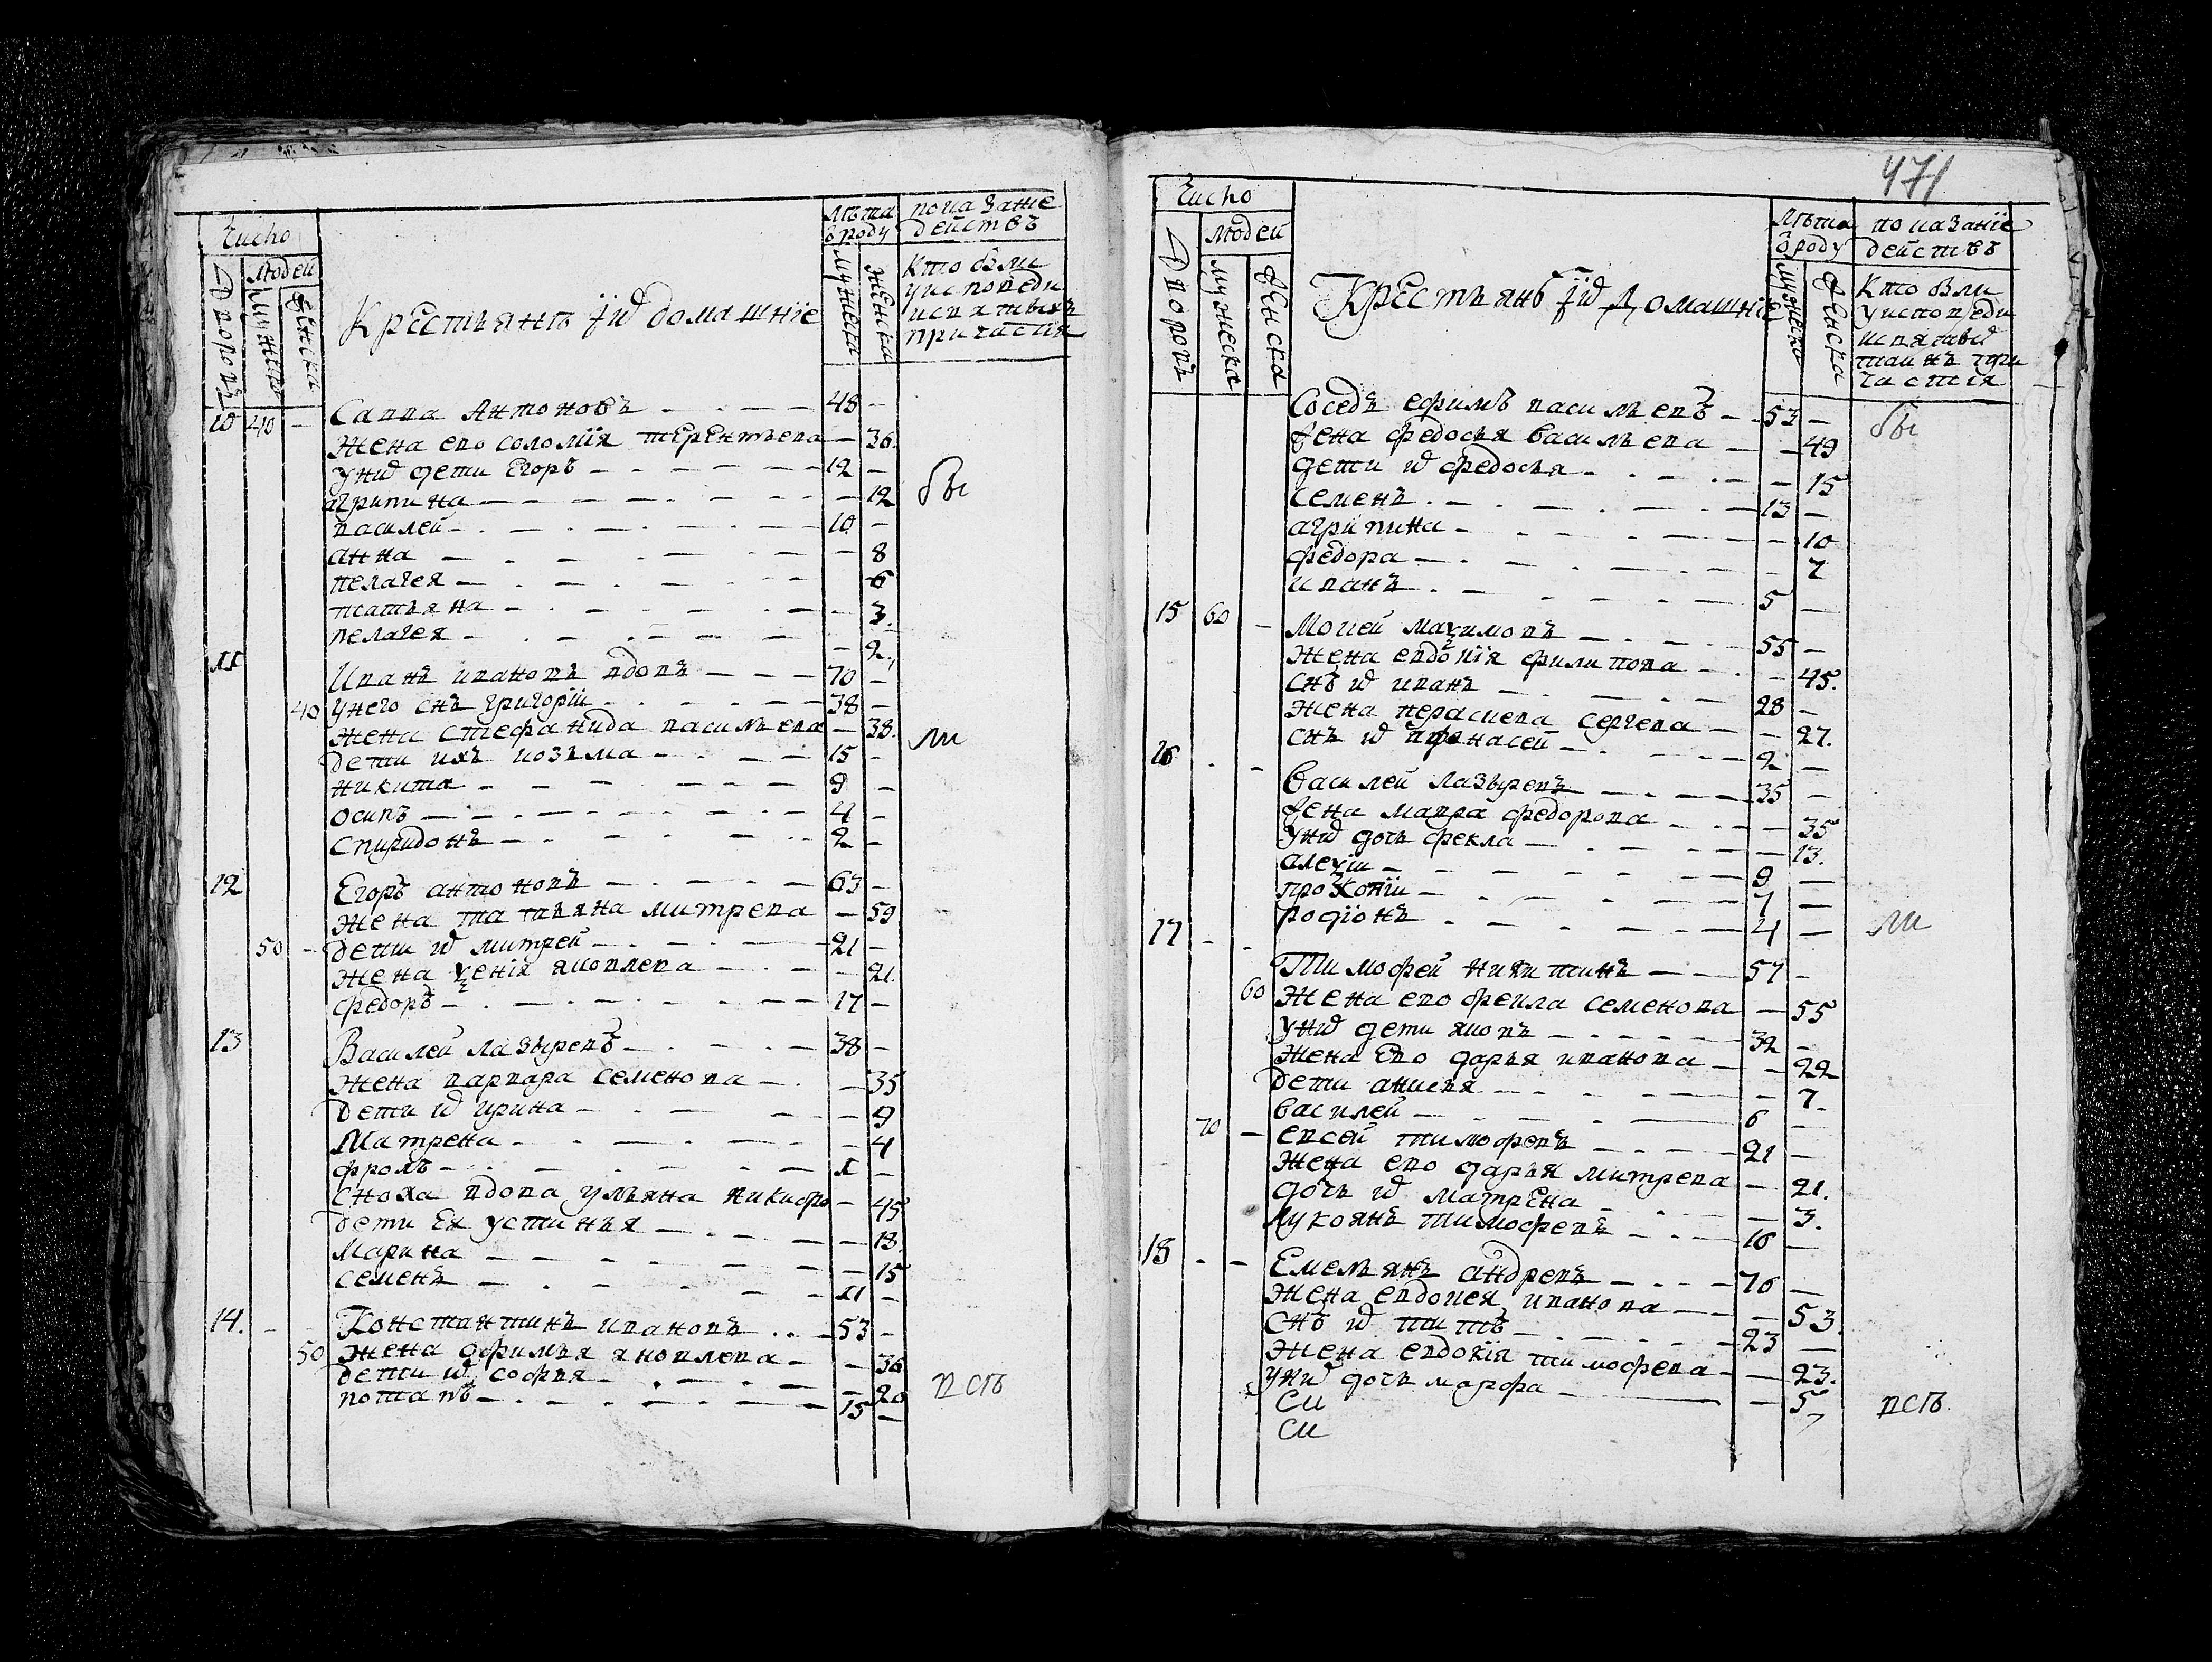 Число
Людей
Дворовъ
Мужеска
Женска
Крестьянѣ їихъ домашнїе
Лѣта ѿроду
Мужеска
Женска
показанїе действъ
Кто были
уисповеди
исвятыхъ
причастїя
10 40 - Савва Антоновъ 48 -
Жена ево соломїя терентьева - 36.
Унихъ дети Егоръ 12 -
агрипина - 12 бы
василей 10 -
анна - 8
пелагея - 6
татьяна - 3.
пелагея - 2.
11 Иванъ ивановъ вдовъ 70 -
40 Унего снъ григорїи 38 -
жена стефанида васильева - 38. ли
дети ихъ козьма 15 -
никита 9 -
осипъ 4 -
спиридонъ 2 -
12 Егоръ антоновъ 63 -
жена татьяна митрева - 59
50 - дети их митрей 21 -
жена ѯенїя яковлева - 21.
федоръ 17 -
13 Василей лазыревъ 38 -
жена варвара семенова - 35
дети их ирина - 9
Матрена - 4
фролъ 1 -
сноха вдова ульяна никифо - 45
дети Ея устинья - 18.
Марина - 15
семенъ 11 -
14. - Константинъ ивановъ 53 -
50 жена офимья яковлева - 36
дети их софья - 20 вст
потапъ 15 -
471
Число
Людей
Дворовъ
Мужеска
Женска
Крестьянѣ їихъ домашнїе
Лѣта ѿроду
Мужеско
Женска
показанїе действъ
Кто были
уисповеди
исвятых
таинъ при
частїя
Соседъ ефимъ васильевъ 53 - бы
жена федосья васильева - 49
дети их федосья - 15
семенъ 13 -
агрипина - 10
федора - 7
иванъ 5 -
15 60 - Мокей маѯимовъ 55 -
жена евдокїя филипова - 45.
снъ их иванъ 28 -
жена парасцева сергева - 27.
снъ их афонасей 2 -
16 - - Василей лазыревъ 35 -
жена мавра федорова - 35
Уних дочь фекла - 13.
алеѯїи 9 -
прокопїи 7 -
родїонъ 4 - ли
17 - - Тимофей никитинъ 57 -
60 жена ево фекла семенова - 55
Уних дети яковъ 32 -
жена Ево дарья иванова - 22
дети анисья - 7.
василей 6 -
70 - евсей тимофевъ 21 -
жена ево дарья митрева - 21.
дочь их матрена - 3.
Лукоянъ тимофевъ 16 -
18 - - Емельянъ андревъ 76 -
жена евдокея иванова - 53.
снъ их титъ 23 -
жена евдокїя тимофева - 23.
уних дочь марфа - 5 вст.
Си
Си